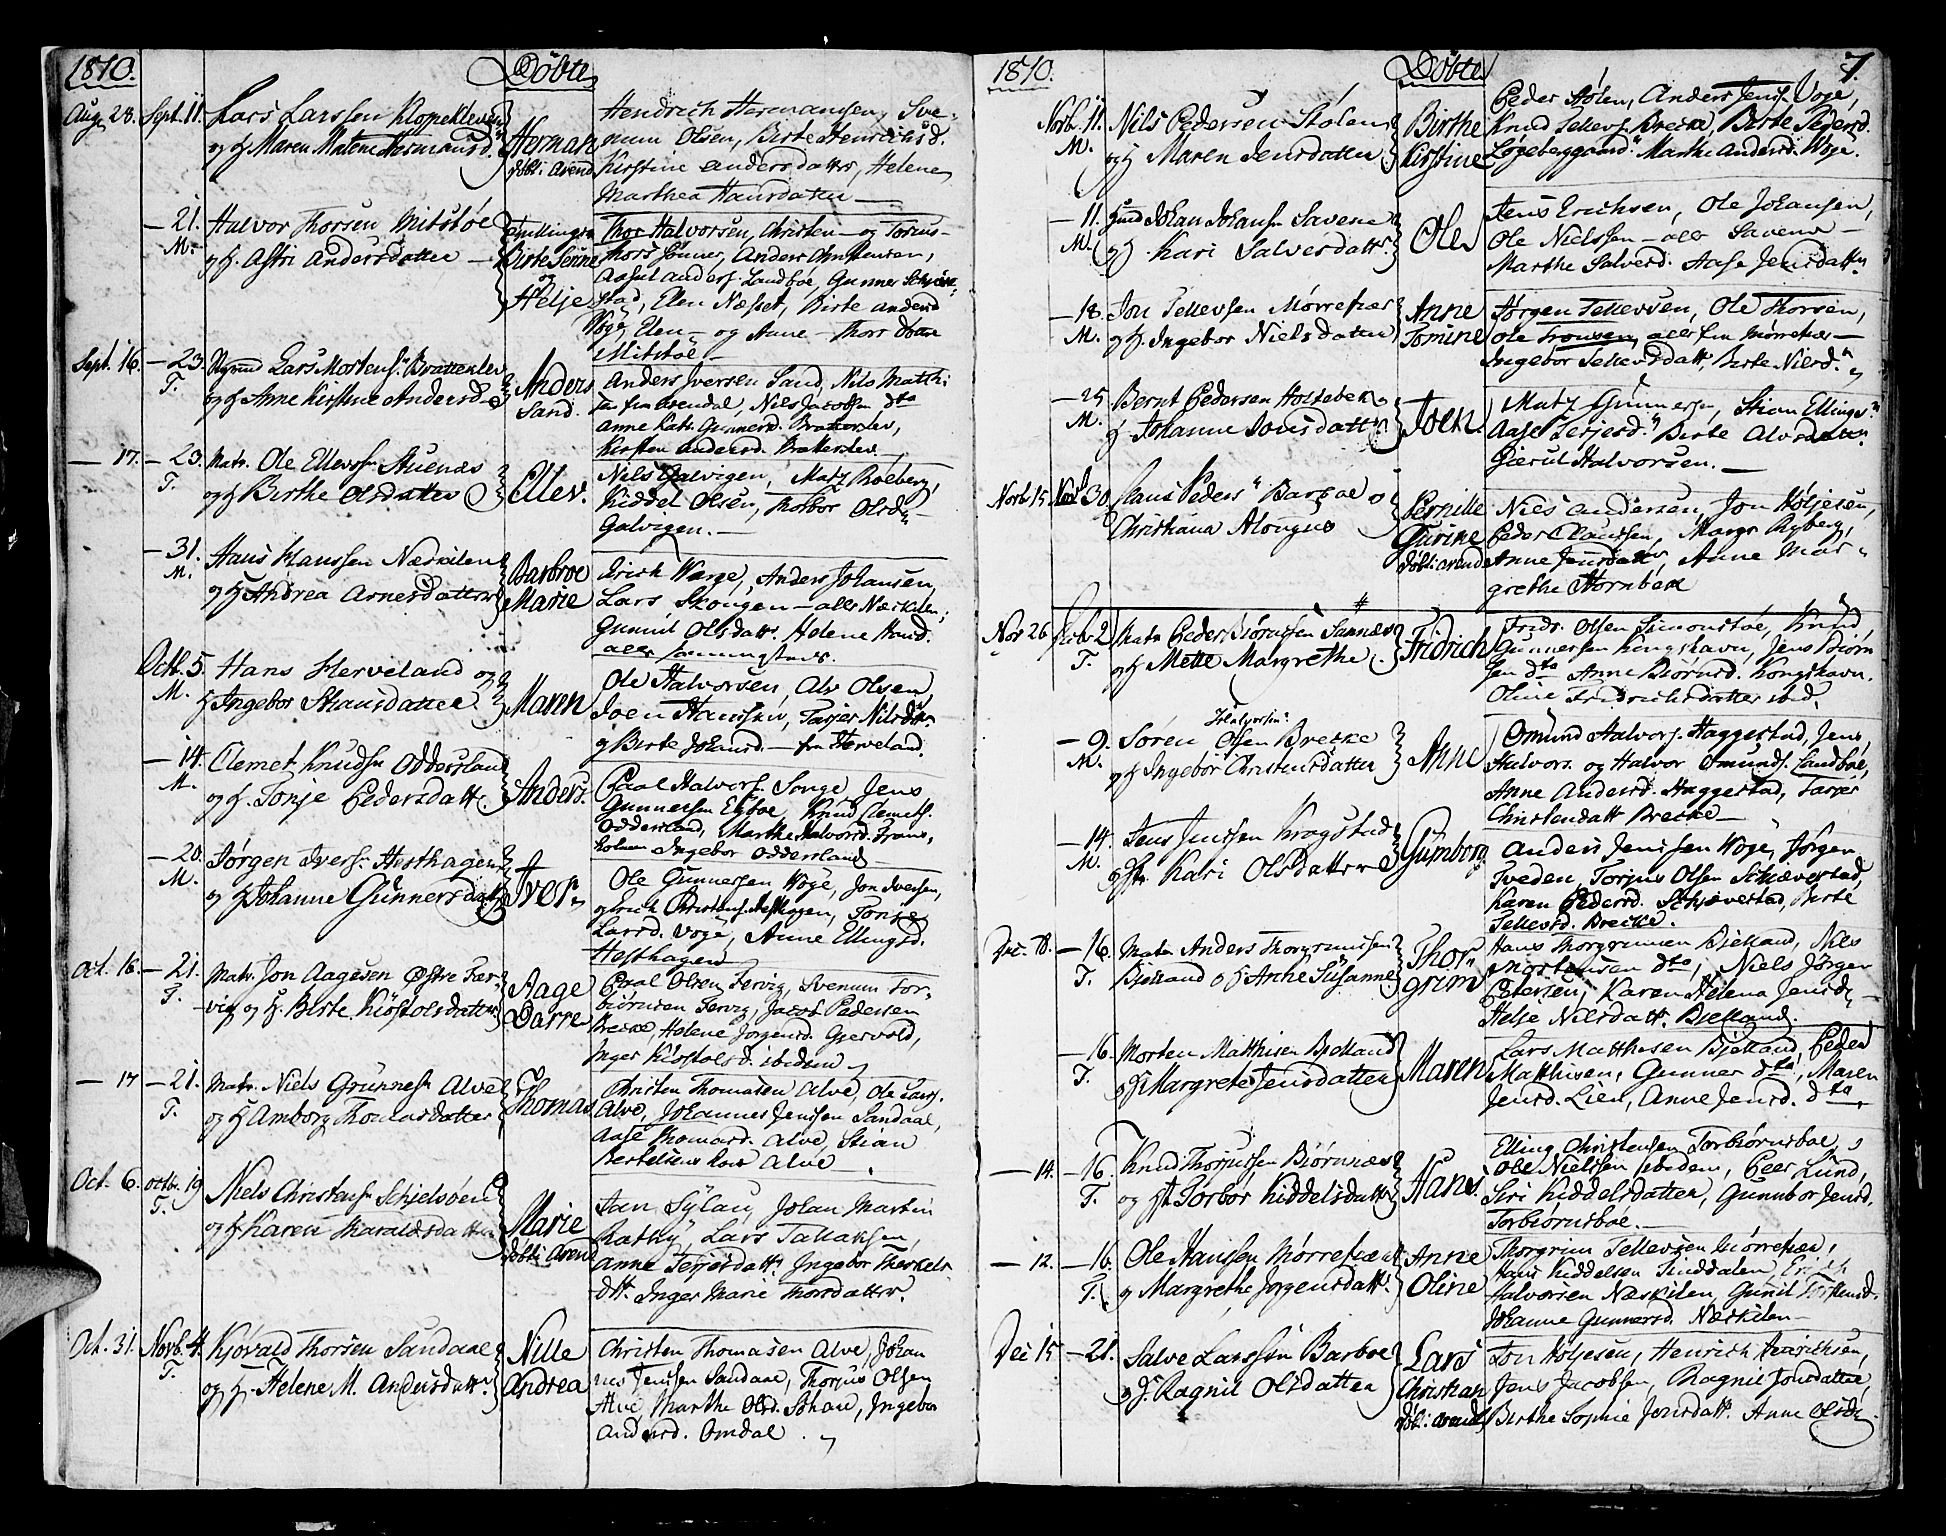 1810.
Døbte
Aug. 28. Sept. 11.
Lars Larssen Klopekleven
og H Maren Matene Hermansd.
Herman
døbt i Arend.
Hendrich Hermansen, Sve-
num Olsen, Birte Henrichsd.
Kirstine Andersdatter, Helene
Marthea Hansdatter
— 21.
M.
Halvor Thorsen Mitsbøe
og H. Astri Andersdatter —
Tvillinger
Birte Serine
og
Helje
Thor Halvorsen, Christen — og Torius-
Thors Sønner, Anders Christensen,
Aasul Anders. Landboe, Gunner
stad, Elen Næsset, Birte Andersd
Voge, Elen — og Anne — Thors Døttre
Mitsbøe —
Sept. 16. — 23.
T.
Lars Mortens. Bratteklev
og H Anne Kirstine Andersd
Anders
Sand.
Anders Iversen Sand, Nils Matthi-
sen fra Arendal, Nils Jacobsen dto
Anne Katr. Gunnersd. Brattekslev,
Kirsten Andersd. Brattekslev —
— 17. — 23.
T.
Matr. Ole Ellevss. Stuenæs
og H Birthe Olsdatter
Ellev.
Nils Galvigen, Matz Roeberg,
Kiddel Olsen, Thorbor Olsd
Galvigen. —
— 31.
M.
Hans Hanssen Næskilen
og H Andrea Arnesdatter
Barbroe
Marie
Erich Warge, Anders Johansen,
Lars Skougen — alle Næskilen;
Gunnil Olsdatt. Helene Hansd.
alle sammestads.
Octb. 5.
M.
Hans Herveland og
H Ingebor Hansdatter
Maren
Ole Halvorsen, Alv Olsen,
Joen Hanssen, Tarjer Nilsdtr.
og Birte Johansd. — fra Herveland.
— 14.
M.
Clemet Knudsn Oddersland
og H. Tonje Pedersdatt.
Anders.
Paal Halvors. Songe, Jens
Gunnersen Egboe, Knud Clemets.
Oddersland, Marthe Halvorsd. Frans-
holmen Ingebor Oddersland —
— 20.
M.
Jørgen Ivers. Hesthagen
og H Johanne Gunnersdatt.
Iver
Ole Gunnersen Woge, Jon Iversen,
og Erich Christens. Hesthagen, Tonje
Larsd. Voge, Anne Ellingsd.
Hesthagen —
Oct. 16. — 21.
T.
Matr. Jon Aagesen Østre Fær-
vig og H. Birte Kiøstolsdatter
Aage
Darre
Paal Olsen Fervig, Svenum Tor-
biørnsen Fervig, Jacob Pedersen
Brekke, Helene Jørgensd. Gjervold,
Inger Kiøstolsd. ibidem
— 17 — 21.
T.
Matr. Niels Gunness. Alve
og H Amborg Thomasdatter
Thomas
Christen Thomasen Alve, Ole Larss.
Alve, Johannes Jenssen Sandaae,
Aase Thomasd. Alve, Stian
Bertelsens Kone Alve —
Oct. 6. Octb. 19
T.
Niels Christens. Schjelsøen
og H Karen Haraldsdatter
Marie
døbt i Arend.
Jan Sylau, Johan Martin
Rathky, Lars Tallaksen,
Anne Terjesdatt. Ingebor Therkels-
dtt. Inger Marie Thorsdatter.
Oct. 31. Novb. 4.
T.
Kjøvald Thorsen Sandaae
og H. Helene M. Andersdatt.
Nille
Andrea
Christen Thomasen Alve, Johan
nes Jenssen Sandaae, Thorjus Olsen
Alve Marthe Olsd. Ingebor
Andersd. Omdal.
1810.
Døbte
7.
Novb. 11.
M.
Nils Pedersen Stølen
og H Maren Jensdatter
Birthe
Kirstine
Peder Stølen, Anders Jens. Voge,
Knud Tellevs. Brekke, Birte Pedersd.
Løgeberggaard. Marthe Andersd. Woge.
— 11.
M.
Johan Johans. Savene
og H. Kari Salvesdatter
Ole
Jens Erichsen, Ole Johansen,
Ole Nielssen — alle Savene —
Marthe Salvesd. Aase Jensdatter
— 18.
M.
Jon Tellevsen Mørrefiær
og H. Ingebor Nielsdatter
Anne
Tomine
Jørgen Tellevsen, Ole Thorsen,
Ole Tronsen, alle fra Mørrefiær —
Ingebor Tellevsdatt, Birte Nilsd.
— 25
M.
Bernt Pedersen Holtebek
H Johanne Jonsdatter
Joen
Matz Gunnersen, Stian Ellings.
Aase Terjesd. Birte Alvsdatter
Gierul Halvorsen. —
Novb. 15 Novb. 30
Claus Peders. Barboe
Christiana Alongus
Pernille
Gurine
døbt i Arend.
Niels Andersen, Jon Høljesen,
Peder Claussen, Margr. Ryberg,
Anne Jensdatt, Anne Mar-
grethe Hornbek
Nov. 26. Decb. 2.
T.
Matr. Peder Biørnssen Sannæs
og H Mette Margrethe
Fridrich
Fridr. Olsen Simonsbøe, Knud
Gunnersen Kongshavn, Jens Biørn
sen dto Anne Biørnsd. Kongshavn.
Oline Fridrichsdatter ibid.
— 9.
M.
Søren Olsen Brekke
og H Ingebor Christensdatter
Anne
Omund Halvors. Haggestad, Jens
Halvors. og Halvor Omunds. Landboe,
Anne Andersd. Haggestad, Tarjer
Christendatt Brekke —
— 14.
M.
Jens Jenssen Kragstad
og H Kari Olsdatter
Gunborg
Anders Jenssen Woge, Jørgen
Tveden, Torjus Olsen Schævestad,
Karen Pedersd. Schjævestad, Birte
Tellevsd. Brekke.
Dec. 10. — 16.
T.
Matr. Anders Thorgrimsen
Bjelland og H Anne Susanne
Thor-
grim
Hans Thorgrimsen Bjelland, Nils
Mortensen dto, Niels Jørgen
Petersen, Karen Helena Jensd.
Helje Nilsdatt. Bjelland.
— 16.
T.
Morten Matthisen Bjelland
og H Margrete Jensdatter
Maren
Lars Matthisen Bjelland, Peder
Matthisen, Gunner dto, Maren
Jensd. Lien, Anne Jensd. dto
— 14. — 16
T.
Knud Thorjussen Biørnnæs
og H Torbor Kiddelsdatter
Hans.
Elling Christensen Torbiørnsboe,
Ole Nielssen ibidem, Peer Lund,
Siri Kiddelsdatter, Gunnbor Jensd.
Torbiørnsboe. —
— 12. — 16.
T.
Ole Hanssen Mørrefiær
og Margrethe Jørgensdatt.
Anne
Oline
Thorgrim Tellevsen Mørrefiær,
Hans Kiddelsen Sinddalen, Erich
Halvorsen Næskilen, Gunil Torstensd.
Johanne Gunnersd. Næskilen —
Dec 15 — 21.
Salve Larssen Barboe
og H. Ragnil Olsdatter
Lars
Christian
døbt i Arend
Jon Høljesen, Henrich Henrichsen,
Jens Jacobsen, Ragnil Jonsdatter,
Birthe Sophie Jensdatt. Anne Olsd.